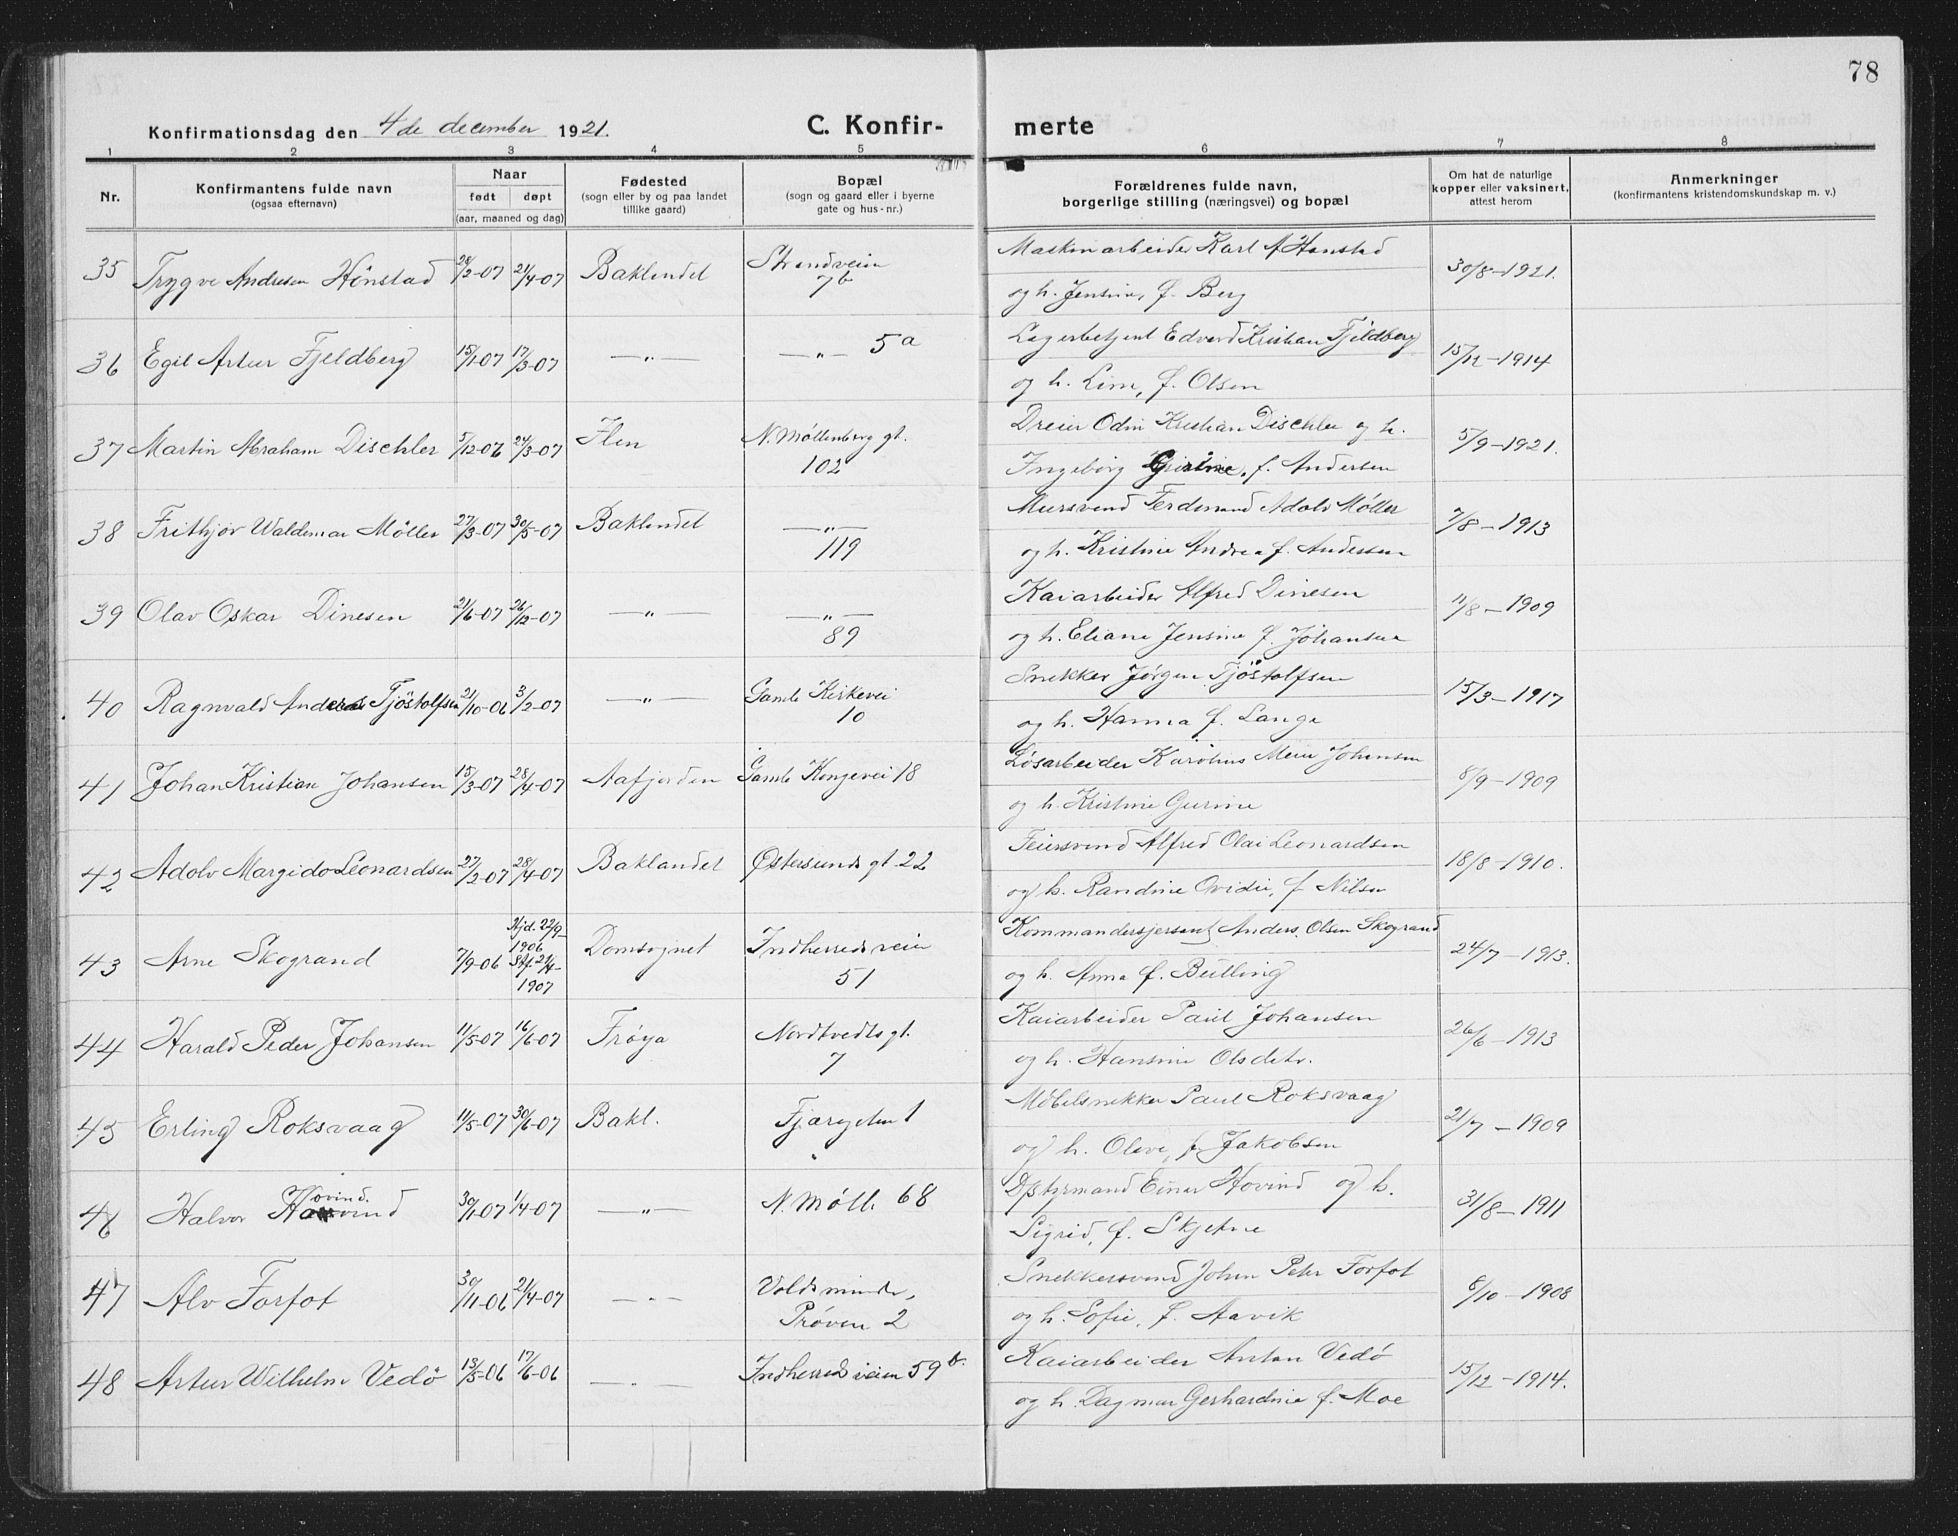 78
Konfirmationsdag den 4de december 1921.
C. Konfir- merte
1 2 3 4 5 6 7 8
Nr.
Konfirmantens fulde navn
(ogsaa efternavn)
Naar
født døpt
(aar, maaned og dag)
Fødested
(sogn eller by og paa landet
tillike gaard)
Bopæl
(sogn og gaard eller i byerne
gate og hus-nr.)
Forældrenes fulde navn,
borgerlige stilling (næringsvei) og bopæl
Om hat de naturlige
kopper eller vaksinert,
attest herom
Anmerkninger
(konfirmantens kristendomskundskap m. v.)
35 Trygve Andresen Hönstad 28/2-07 21/4-07 Baklendet Strandveien 7b
Maskinarbeider Karl A Hønstad
og h. Jensine, f. Berg
30/8-1921.
36 Egil Artur Fjeldberg 15/1-07 17/3-07 —„— —„— 5a
Lagerbetjent Edvard Kristian Fjeldberg
og h. Lina, f. Olsen
15/12-1914
37 Martin Abraham Dischler 5/12-06 24/3-07 Ilen N. Møllenberg gt. 102
Dreier Odin Kristian Dischler og h.
Ingeborg, f. Andersen
5/9-1921.
38 Frithjov Waldemar Möller 27/3-07 30/5-07 Baklendet —„— 119
Mursvend Ferdinand Adolv Møller
og h. Kristine Andrea f. Andersen
7/8-1913
39 Olav Oskar Dinesen 21/6-07 26/12-07 —„— —„— 89
Kaiarbeider Alfred Dinesen
og h. Eliane Jensine f. Johansen
11/8-1909
40 Ragnvald Anders Tjöstolfsen 21/10-06 3/2-07 —„— Gamle Kirkevei 10
Snekker Jørgen Tjöstolfsen
og h. Hanna f. Lange
15/3-1917
41 Johan Kristian Johansen 15/3-07 28/4-07 Aafjorden Gamle Kongevei 18
Løsarbeider Karolius Meier Johansen
og h. Kristine Gurine
8/9-1909
42 Adolv Margido Leonardsen 27/2-07 28/4-07 Baklandet Østersunds gt 22
Feiersvend Alfred Olai Leonardsen
og h. Randine Ovidie, f Nilsen
18/8-1910.
43 Arne Skogrand 7/9-06 Hjd. 22/9-1906 Stf. 21/4-1907 Domsognet Indherredsveien 51
Kommandersjersent Anders Olsen Skogrand
og h. Anna f. Bülling
24/7-1913.
44 Harald Peder Johansen 11/5-07 16/6-07 Frøya Nordtvedts gt. 7
Kaiarbeider Paul Johansen
og h. Hansine Olsdetr.
26/6-1913
45 Erling Roksvaag 11/5-07 30/6-07 Bakl. Fjæregaten 1
Møbelsnekker Paul Roksvaag
og h. Oleve, f. Jakobsen
21/7-1909
46 Halvor Hovind 30/1-07 1/4-07 —„— N. Möll. 68
Dpstyrmand Einar Hovind og h.
Sigrid, f. Skjetne
31/8-1911
47 Alv Forfot 30/11-06 21/4-07 —„— Voldsminde, Prøven 2
Snekkersvend Johan Peter Forfot
og h. Sofie, f. Aavik
8/10-1908
48 Artur Wilhelm Vedö 13/5-06 17/6-06 —„— Indherredsveien 59b
Kaiarbeider Anton Vedö
og h. Dagmar Gerhardine f. Moe
15/12-1914.